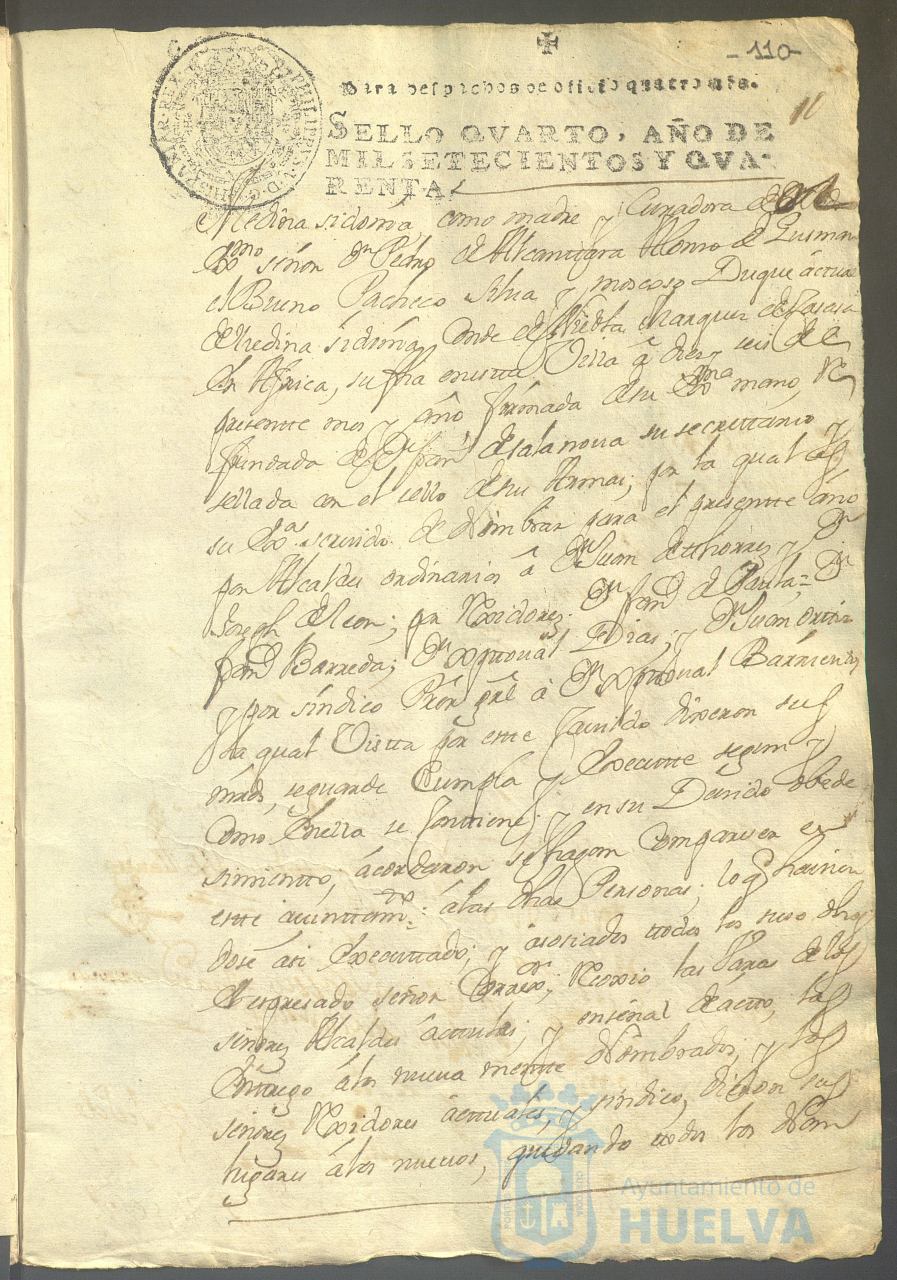 -110-
Para despachos de oficio quatro mrs.
SELLO QVARTO, AÑO DE
MIL SETECIENTOS Y QVA-
RENTA.
Medina sidonia, como madre y Curadora del
exmo señor Dn Pedro de Alcantara Alonso de Gusman
el Bueno Pacheco Silva y moscoso Duque áctual
de Medina sidonia, Conde de Niebla Marques de Casasa
En Africa, su fha en esta Villa á diez y seis de
presentte mes y año firmada de su Exma mano, Re
frendada de Dn fran de salanova su secrettario y
sellada con el sello de sus Armas; por la qual es
su Exa servido de Nombrar para el presentte año
por Alcaldes ordinarios á Dn Juan de thorres y Dn
Joseph de Leon; por Rexidores Dn fand de Paula= Dn
fand Barreda; Dn xptoual Dias; y Dn Juan ortiz
y por síndico Prôr grâl á Dn xptoual Barrientos
La qual Vistta por este Cauildo dixeron sus
mrds, se guarde Cumpla y Execute segun y
Como En ella se Conttiene; y en su Deuido obede
simientto, ácordaron se hagan Comparecer en
estte aiúnttamto á las dhas Personas; lo q hauien
dose ási Executtado; y ásosiados ttodos los suso dhos
El expresado señor Correxor, Recoxio las Varas de los
señores Alcaldes ácttuales; y en señal de actto, las
Entrego á los nueva mentte Nombrados; y los
señores Rexidores áctuales, y síndico, dieron sus
lugares á los nuevos, quedando ttodos los Nom
Ayuntamiento de
HUELVA